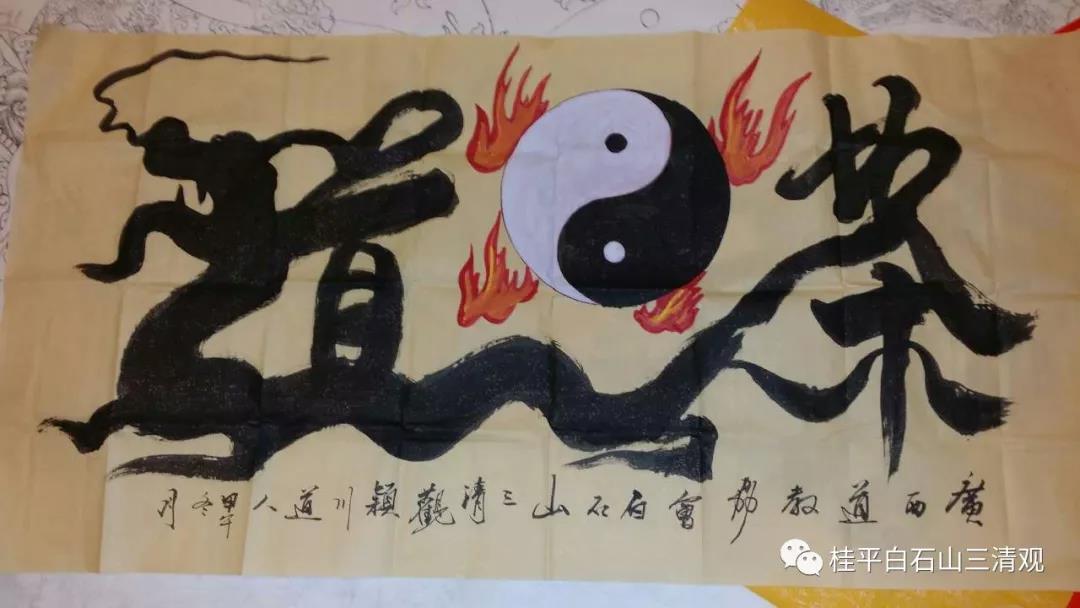 道
廣西道教協會白石山三清觀穎川道人甲午冬月
桂平白石山三清观